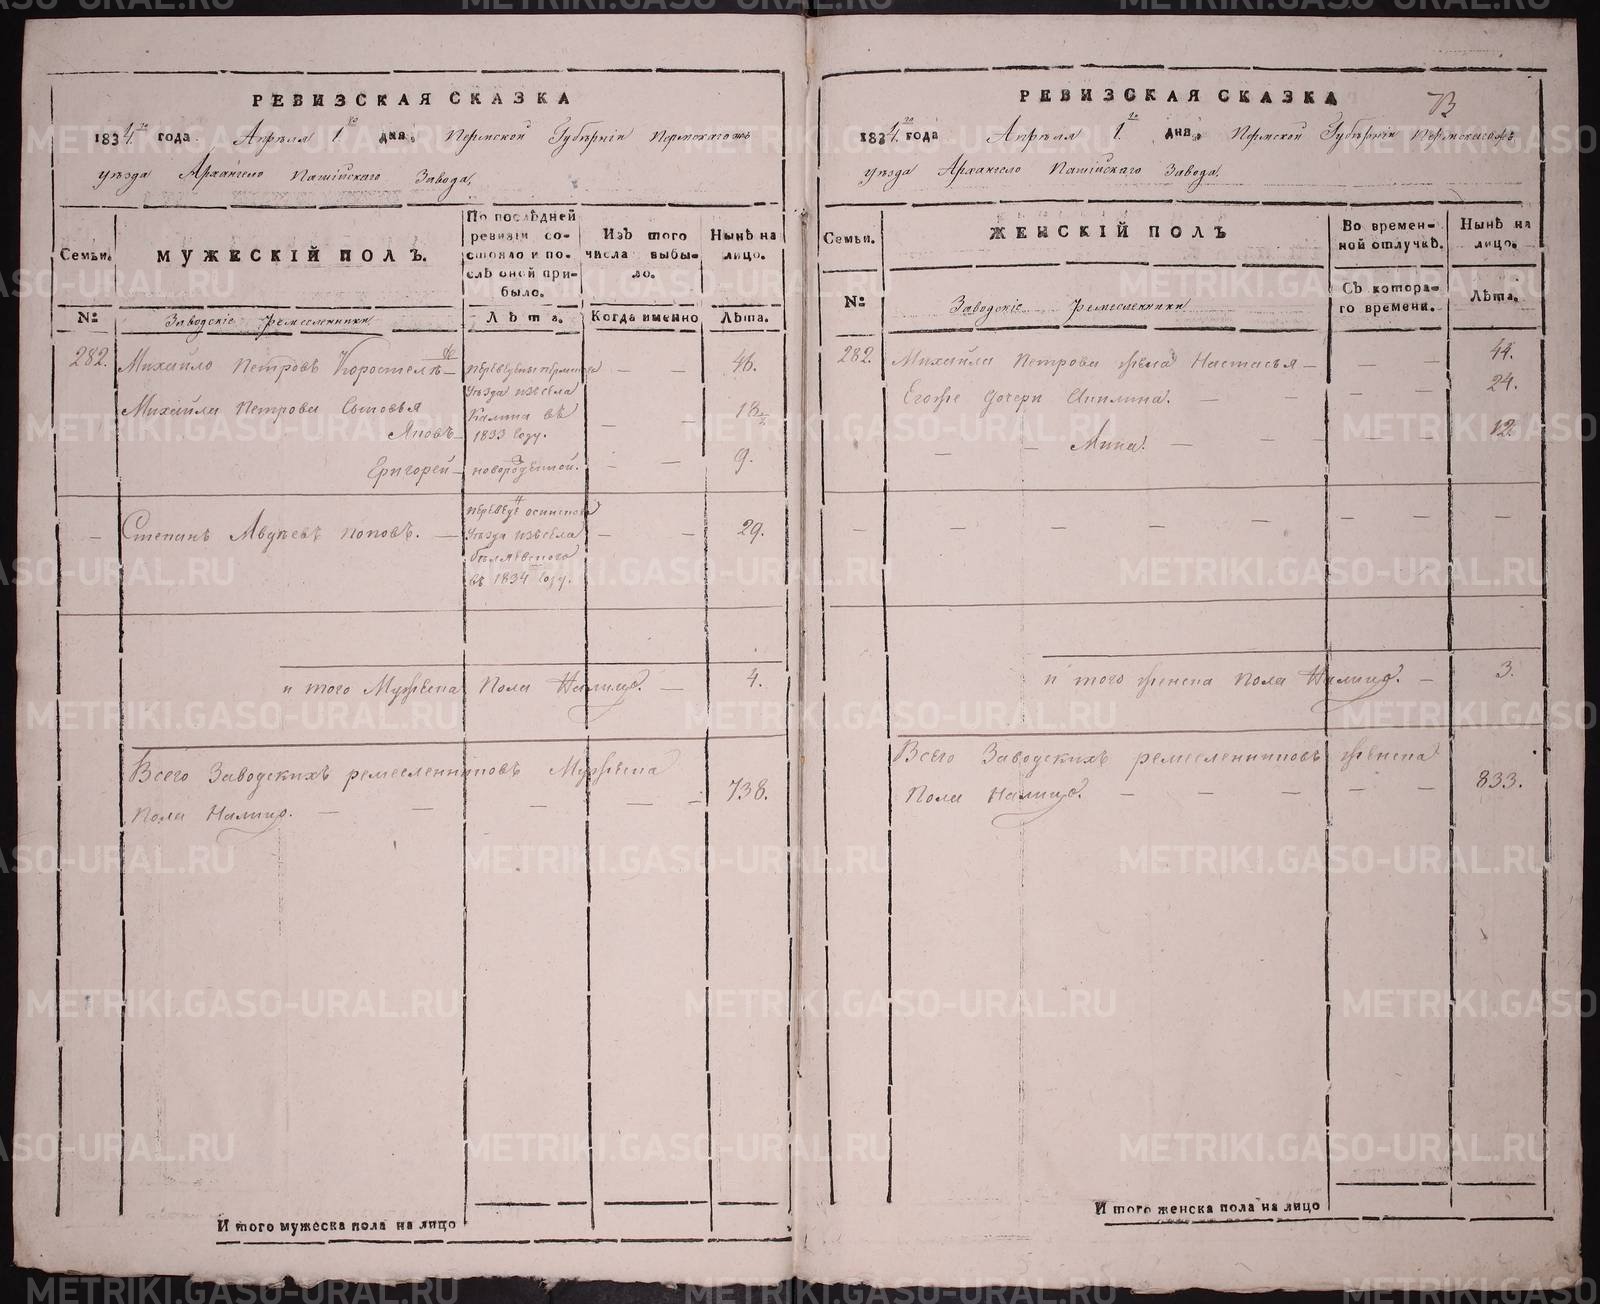 РЕВИЗСКАЯ СКАЗКА
1834.го года Апрѣля 1.го дня. Пермской Губѣрніи Пермскагожъ
уѣзда Архангело Пашійскаго Завода.
Семьи.
МУЖЕСКІЙ ПОЛЪ.
По послѣдней ревизіи состояло и послѣ оной прибыло.
Изъ того числа выбыло.
Нынѣ на лицо.
№
Заводскіе Ремесленники
Лѣта.
Когда именно
Лѣта.
282. Михайло Петровъ Коростелевъ — — — 46.
Уѣзда изъ села
Михайла Петрова Сыновья 18 1/2
въ
Яковъ — 1833 году. —
Григорей — новорожденной. — — 9.
Осинскова
— Степанъ Авдѣевъ Поповъ. — Уѣзда изъ села — — 29.
въ 1834 году.
и того Мужеска Пола Налицо. — 4.
Всего Заводскихъ ремесленниковъ Мужеска
Пола Налицо. — — — — — 738.
РЕВИЗСКАЯ СКАЗКА
73
1834.го года Апрѣля 1.го дня. Пермской Губѣрніи Пермскагожъ
уѣзда Архангело Пашійскаго Завода.
Семьи.
ЖЕНСКІЙ ПОЛЪ
Во временной отлучкѣ.
Нынѣ на лицо.
№
Заводскіе Ремесленники
Съ котораго времени.
Лѣта.
282. Михайла Петрова жена Настасья — — — 44.
Егоже дочери Акилина. — — — — 24.
— — Мина. — — — — 12.
— — — — — — — —
и того женска Пола Налицо. — 3.
Всего Заводскихъ ремесленниковъ женска
Пола Налицо. — — — — — 833.
И того мужеска пола на лицо
И того женска пола на лицо
METRIKI.GASO-URAL.RU